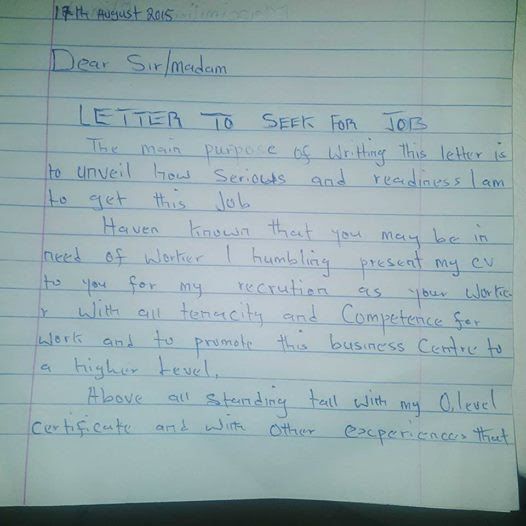 17th August 2015
Dear Sir/madam
LETTER TO SEEK FOR JOB
The main purpose of writting this letter is
to unveil how Serious and readiness I am
to get this Job
Haven known that you may be in
need of worker I humbling present my cv
to you for my recrution as your worke-
r with all tenacity and Competence for
work and to promote this business Centre to
a higher Level,
Above all standing tall with my O,level
certificate and with other experiences that